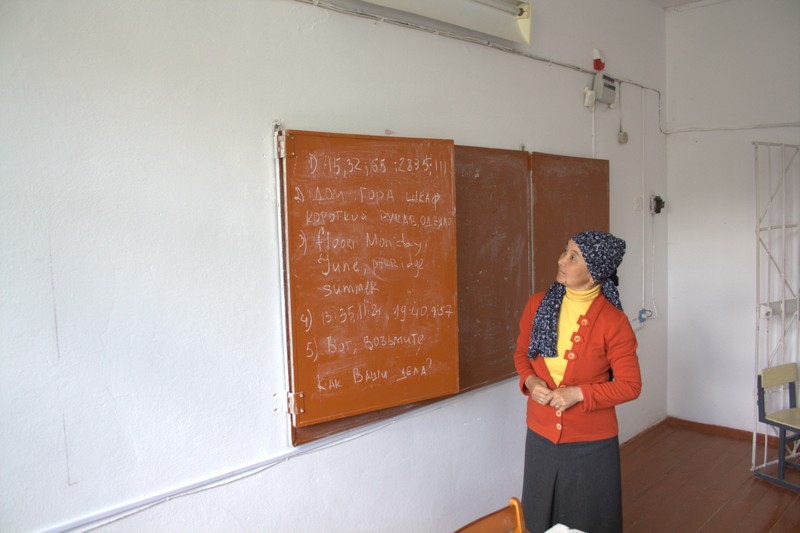 1) 45,32; 65; 2835; 111
2) ДОМ ГОРА ШКАФ
КОРОТКИЙ РУКАВ, ОДЕЯЛО
3) floor; Monday;
June, porridge
summer
4) 15:35, 11:21, 19:40, 9:57
5) Вот, возьмите
Как Ваши дела?